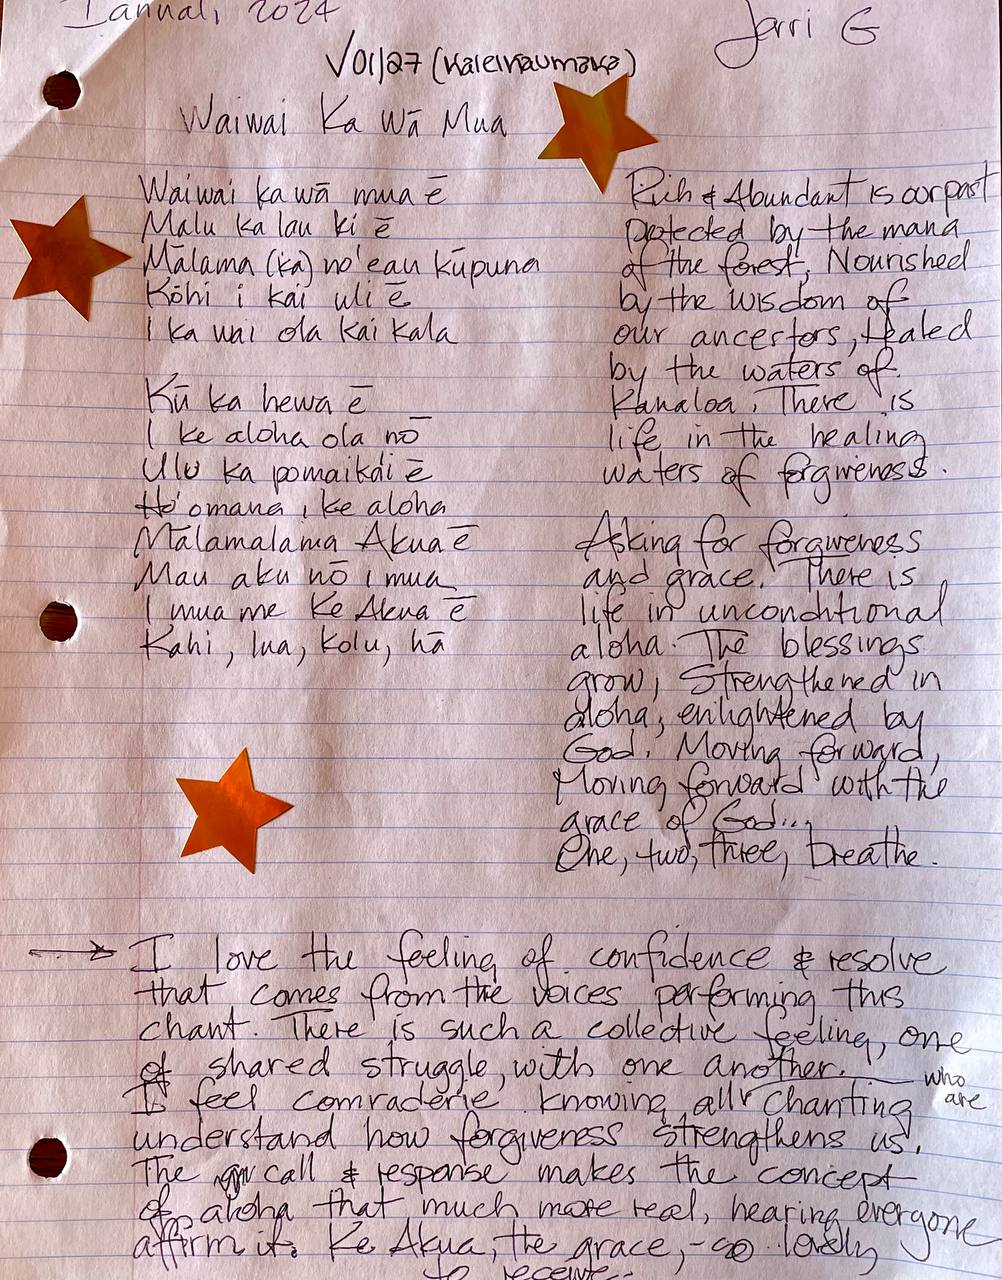 Ianuali, 2024
Jerri G
√01/27 (Kaleikaumaka)
Waiwai Ka Wā Mua
Waiwai ka wā mua ē
Malu ka lau ki ē
Mālama (ka) no'eau kūpuna
Kōhi i kai uli ē
I ka wai ola kai kala
Kū ka hewa ē
I ke aloha ola nō
Ulu ka pomaikái ē
Ho'omana i ke aloha
Mālamalama Akua ē
Mau aku nō i mua
I mua me Ke Akua ē
Kahi, lua, kolu, hā
Rich & Abundant is our past
protected by the mana
of the forest, Nourished
by the wisdom of
our ancestors, Healed
by the waters of
Kanaloa. There is
life in the healing
waters of forgiveness.
Asking for forgiveness
and grace. There is
life in unconditional
aloha. The blessings
grow, Strengthened in
aloha, enlightened by
God. Moving forward,
Moving forward with the
grace of God...
One, two, three, breathe.
→ I love the feeling of confidence & resolve
that comes from the voices performing this
chant. There is such a collective feeling, one
of shared struggle, with one another.
I feel comraderie knowing all who are chanting
understand how forgiveness strengthens us.
The call & response makes the concept
of aloha that much more real, hearing everyone
affirm it. Ke Akua, the grace, - so lovely
to receive..